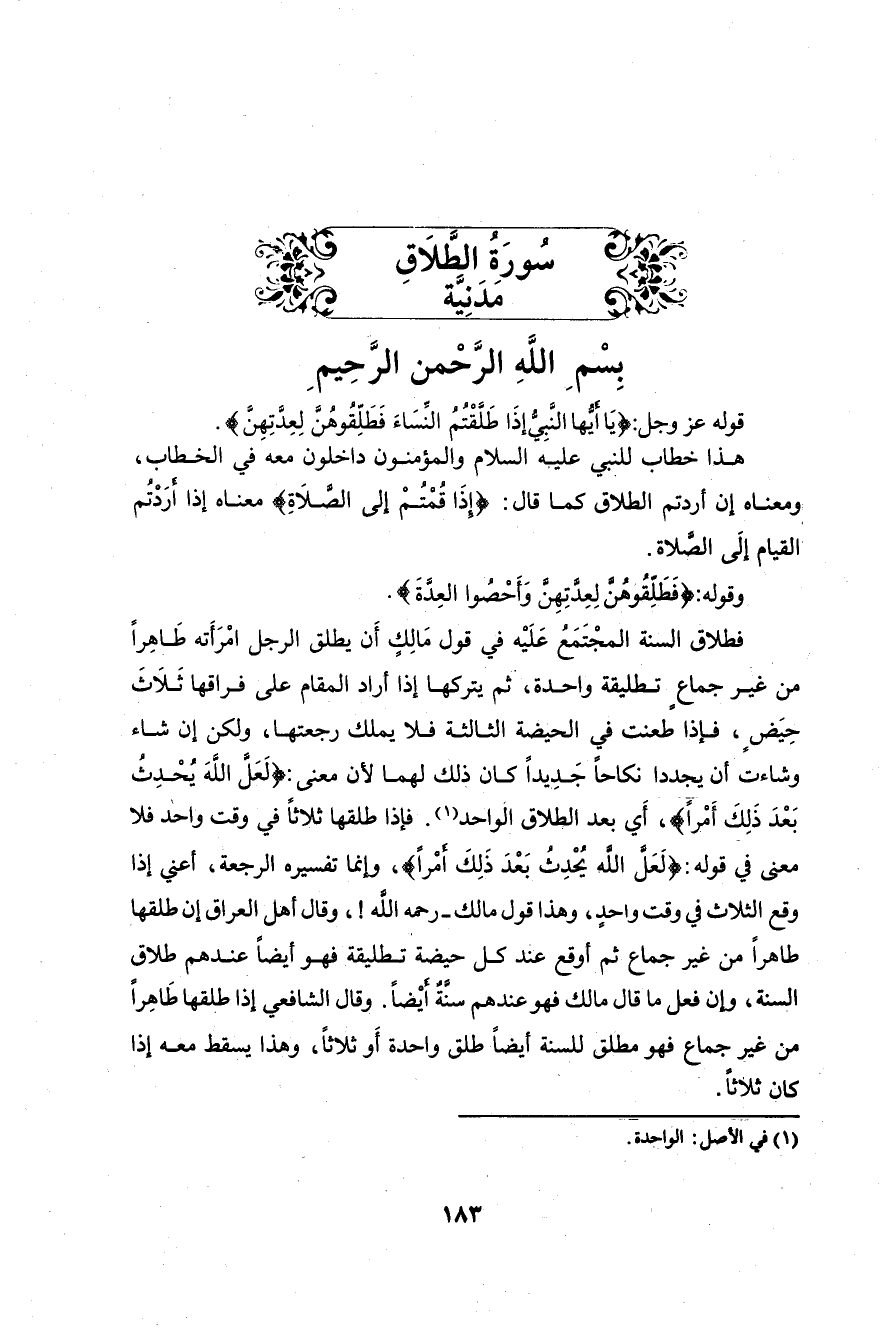 سُورَةُ الطَّلَاقِ
مَدَنِيَّة
بِسْمِ اللَّهِ الرَّحْمنِ الرَّحِيمِ
قوله عز وجل: ﴿يَا أَيُّها النَّبِيُّ إذَا طَلَّقْتُمُ النِّسَاءَ فَطَلِّقُوهُنَّ لِعِدَّتِهِنَّ﴾.
هـذا خطاب للنبي عليـه السلام والمؤمنـون داخلون معه في الخـطاب،
ومعنـاه إن أردتم الطلاق كمـا قال: ﴿إِذَا قُمْتُـمْ إلى الصَّـلَاةِ﴾ معنـاه إذا أَرَدْتُم
القيام إلَى الصَّلاة.
وقوله: ﴿فَطَلِّقُوهُنَّ لِعِدَّتِهِنَّ وَأَحْصُوا العِدَّةَ﴾.
فطلاق السنة المجْتَمَعُ عَلَيْه في قول مَالِكٍ أَن يطلق الرجل امْرَأَته طَـاهِراً
من غيـر جماعٍ تـطليقة واحـدة، ثم يتركهـا إذا أراد المقام على فـراقها ثَـلَاثَ
حِيَضٍ، فـإذا طعنت في الحيضة الثـالثـة فـلا يملك رجعتهـا، ولكن إن شـاء
وشاءت أن يجددا نكاحاً جَـدِيداً كـان ذلك لهمـا لأن معنى: ﴿لَعَلَّ اللَّهَ يُحْـدِثُ
بَعْدَ ذَلِكَ أَمْراً﴾، أي بعد الطلاق الواحد(١). فإذا طلقها ثلاثاً في وقت واحد فلا
معنى في قوله: ﴿لَعَلَّ اللَّه يُحْدِثُ بَعْدَ ذَلِكَ أَمْراً﴾، وإنما تفسيره الرجعة، أعني إذا
وقع الثلاث في وقت واحدٍ، وهذا قول مالك ـ رحمه اللَّه !، وقال أهل العراق إن طلقها
طاهراً من غير جماع ثم أوقع عند كـل حيضة تـطليقة فهـو أيضاً عنـدهم طلاق
السنة، وإن فعل ما قال مالك فهو عندهم سنَّةٌ أَيْضاً. وقال الشافعي إذا طلقها طَاهِراً
من غير جماع فهو مطلق للسنة أيضاً طلق واحدة أَو ثلاثاً، وهذا يسقط معـه إذا
كان ثلاثاً.
(١) في الأصل: الواحدة.
١٨٣